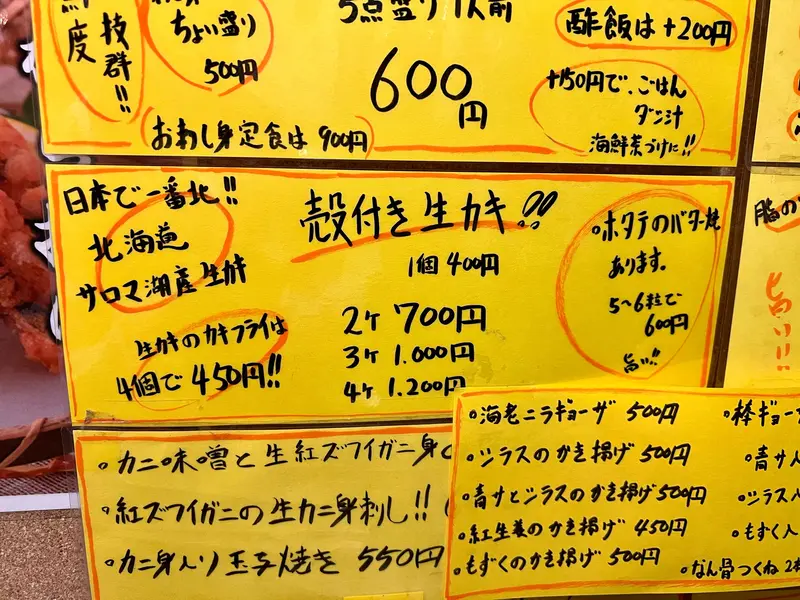 抜群!!
度
ちょい盛り
500円
5点盛り1人前
600円
おさし身定食は 900円
酢飯は+200円
+150円で、ごはん
ダシ汁
海鮮茶づけに!!
日本で一番北!!
北海道
サロマ湖産生カキ
生カキのカキフライは
4個で450円!!
殻付き生カキ!!
1個400円
2ケ 700円
3ケ 1.000円
4ケ 1.200円
。ホタテのバター焼
あります。
5〜6粒で
600円
旨い!!
脂の
旨い!!
。カニ味噌と生紅ズワイガニ身
。紅ズワイガニの生カニ身刺し!!
。カニ身入り玉子焼き 550円
。海老ニラギョーザ 500円
。シラスのかき揚げ 500円
。青サとシラスのかき揚げ500円
。紅生姜のかき揚げ 450円
。もずくのかき揚げ 500円
。棒ギョー
。青サ
。シラス
。もずく入
。なん骨つくね2本